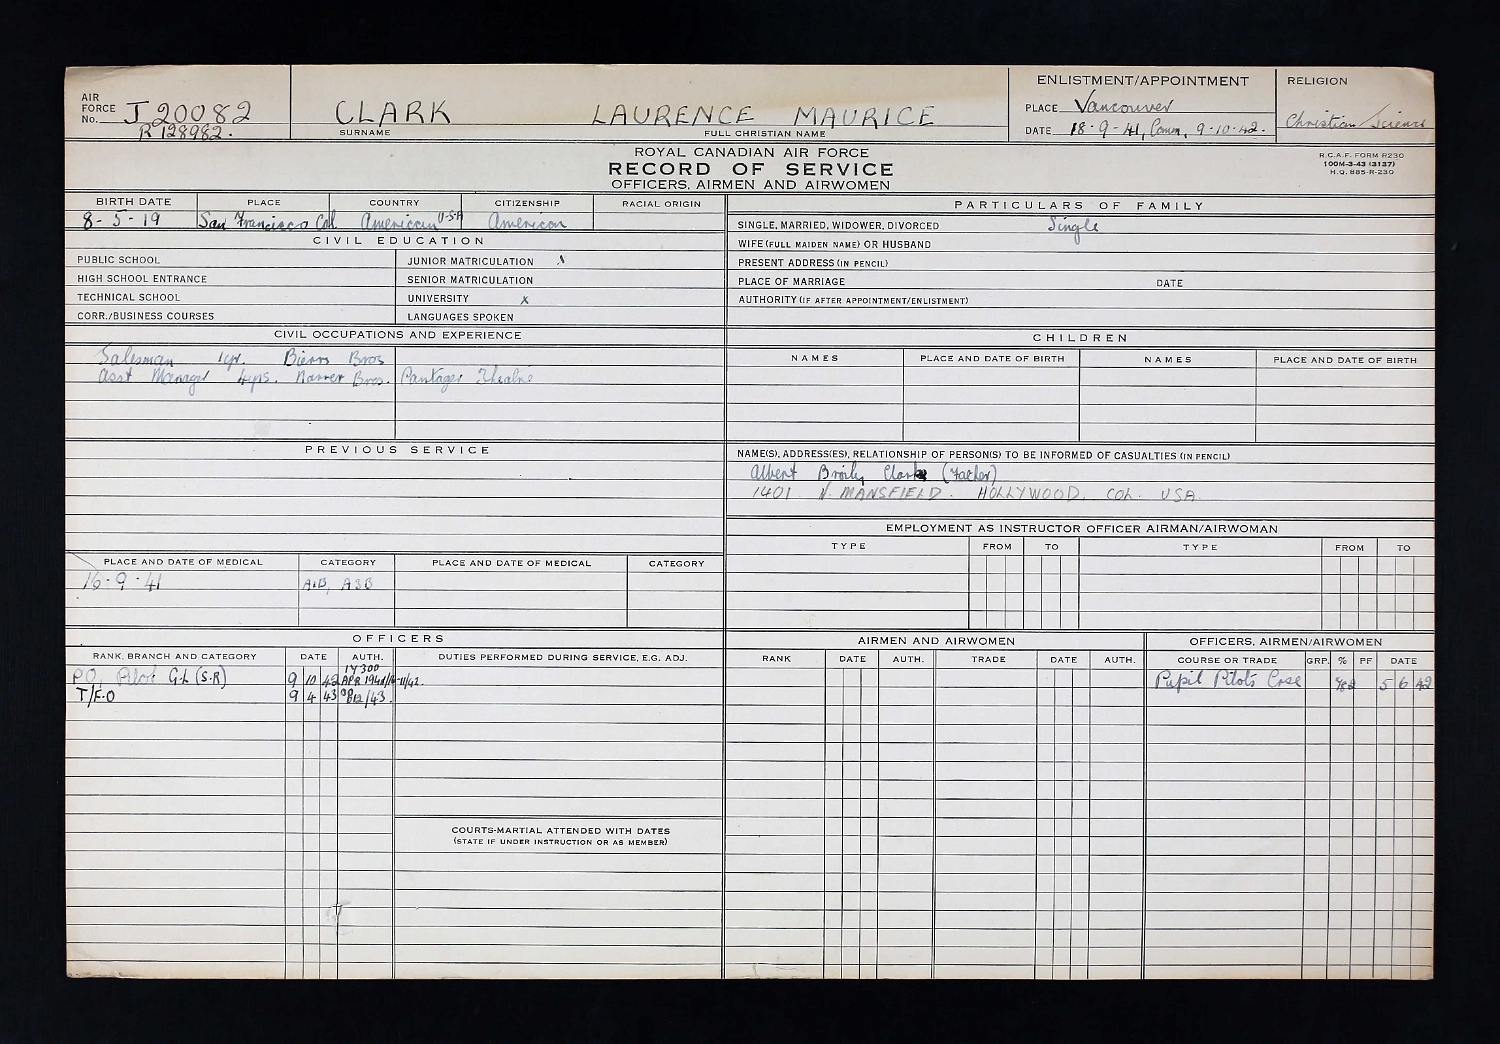 AIR FORCE No. J 20082
R 128982.
CLARK LAURENCE MAURICE
SURNAME FULL CHRISTIAN NAME
ENLISTMENT/APPOINTMENT
PLACE Vancouver
DATE 18-9-41, Comm. 9-10-42.
RELIGION
Christian Science
ROYAL CANADIAN AIR FORCE
RECORD OF SERVICE
OFFICERS, AIRMEN AND AIRWOMEN
R.C.A.F. FORM R230
100M-3-43 (3137)
H.Q. 885-R-230
BIRTH DATE PLACE COUNTRY CITIZENSHIP RACIAL ORIGIN
8-5-19 San Francisco Cal American U-S-A American
CIVIL EDUCATION
PUBLIC SCHOOL JUNIOR MATRICULATION X
HIGH SCHOOL ENTRANCE SENIOR MATRICULATION
TECHNICAL SCHOOL UNIVERSITY X
CORR./BUSINESS COURSES LANGUAGES SPOKEN
CIVIL OCCUPATIONS AND EXPERIENCE
Salesman 1yr. Bros
Asst Manager 4yrs. Bros. Pantages Theatre
PREVIOUS SERVICE
PLACE AND DATE OF MEDICAL CATEGORY PLACE AND DATE OF MEDICAL CATEGORY
16-9-41 A1B, A3B
PARTICULARS OF FAMILY
SINGLE, MARRIED, WIDOWER, DIVORCED Single
WIFE (FULL MAIDEN NAME) OR HUSBAND
PRESENT ADDRESS (IN PENCIL)
PLACE OF MARRIAGE DATE
AUTHORITY (IF AFTER APPOINTMENT/ENLISTMENT)
CHILDREN
NAMES PLACE AND DATE OF BIRTH NAMES PLACE AND DATE OF BIRTH
NAME(S), ADDRESS(ES), RELATIONSHIP OF PERSON(S) TO BE INFORMED OF CASUALTIES (IN PENCIL)
Albert Clark (Father)
1401 N. MANSFIELD. HOLLYWOOD, CAL. USA
EMPLOYMENT AS INSTRUCTOR OFFICER AIRMAN/AIRWOMAN
TYPE FROM TO TYPE FROM TO
OFFICERS
RANK, BRANCH AND CATEGORY DATE AUTH. DUTIES PERFORMED DURING SERVICE, E.G. ADJ.
PO, Pilot GL (S.R) 9 10 42
T/F.O 9 4 43
COURTS-MARTIAL ATTENDED WITH DATES
(STATE IF UNDER INSTRUCTION OR AS MEMBER)
AIRMEN AND AIRWOMEN
RANK DATE AUTH. TRADE DATE AUTH.
OFFICERS, AIRMEN/AIRWOMEN
COURSE OR TRADE GRP. % PF DATE
Pupil Pilots Crse 5 6 42